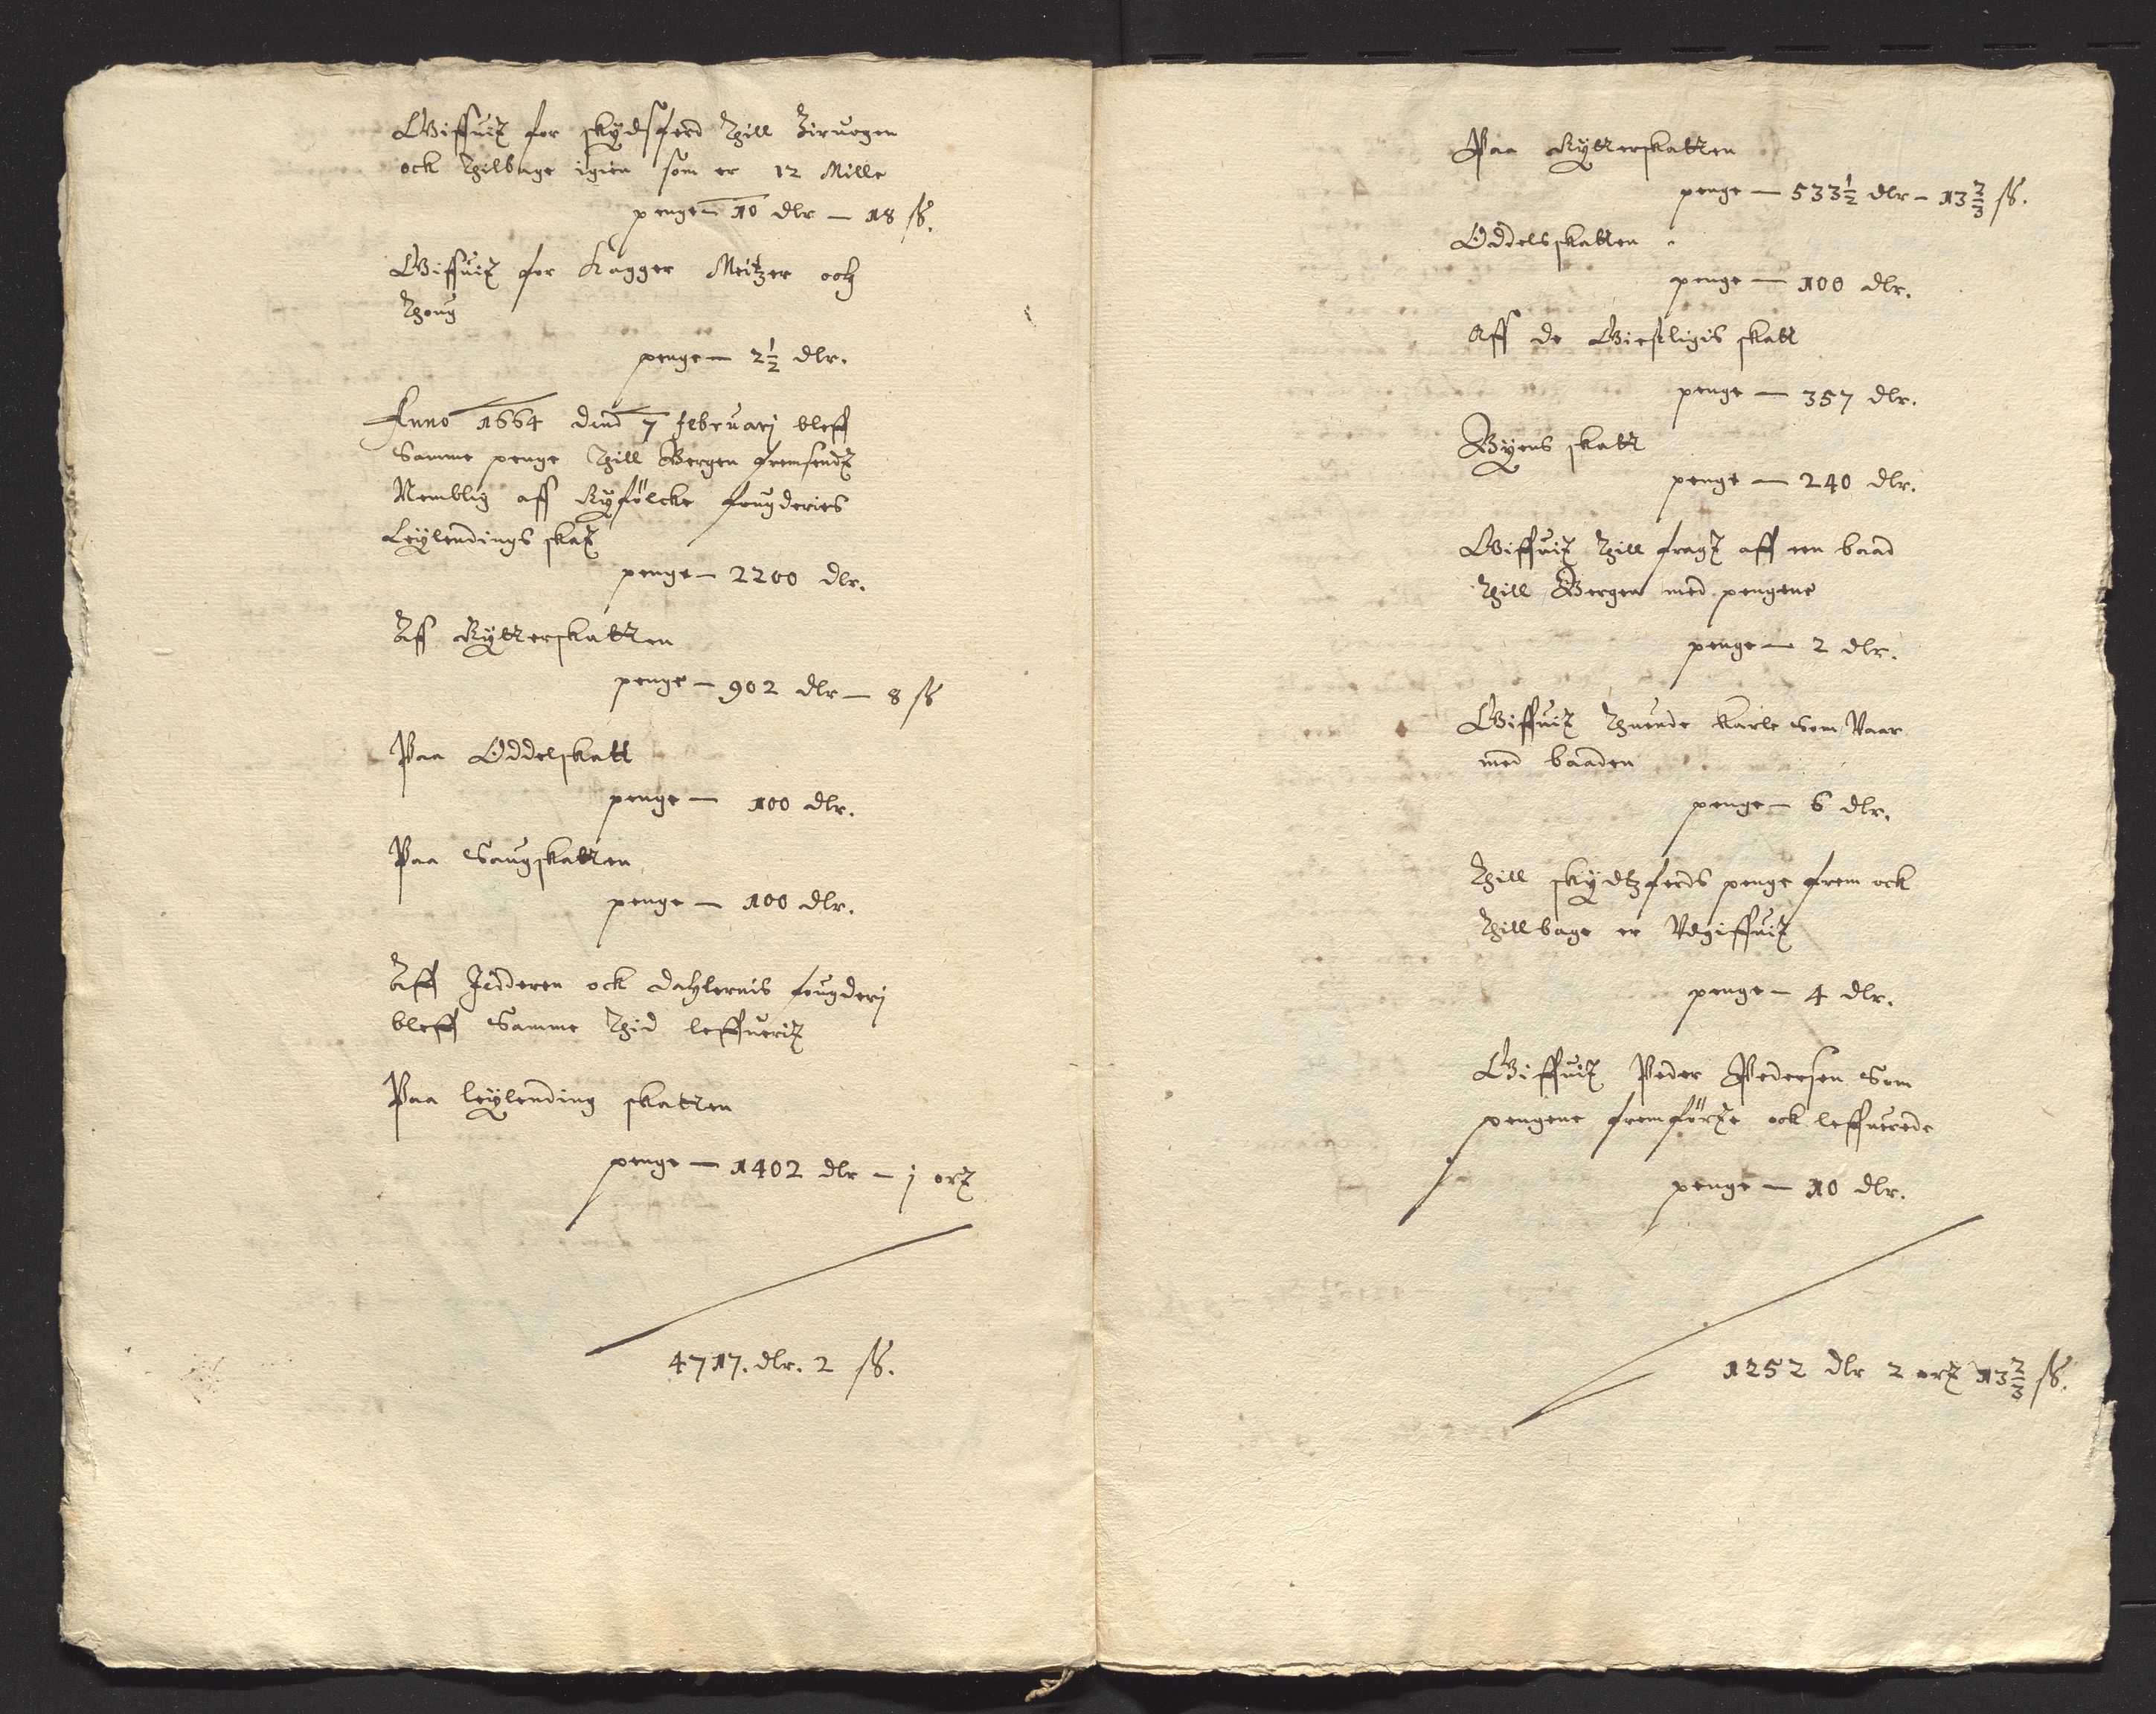 Giffuit for skydsferd thill Siruogen
ock thilbage igien som er 12 Mille
penge — 10 dlr — 18 ß.
Giffuit for Kagger Meitzer och
Thoug
penge — 2½ dlr.
Anno 1664 dend 7 februarj bleff
Samme penge thill Bergen fremsendt
Nemblig aff Ryfölcke fougderies
Leylendings skat
penge — 2200 dlr.
Aff Rytterskatten
penge — 902 dlr — 8 ß
Paa Oddelskatt
penge — 100 dlr.
Paa Saugskatten
penge — 100 dlr.
Aff Jedderen ock dahlernis fougderj
bleff Samme thid leffuerit
Paa leylending skatten
penge — 1402 dlr — j ort
4717. dlr. 2 ß.
Paa Rytterskatten
penge — 533½ dlr — 13⅔ ß.
Oddelsskatten
penge — 100 dlr.
Aff de Giestligis skatt
penge — 357 dlr.
Byens skatt
penge — 240 dlr.
Giffuit thill fragt aff een baad
thill Bergen med pengene
penge — 2 dlr.
Giffuit thuende karle som Vaar
med baaden
penge — 6 dlr.
Thill skydtzferds penge frem ock
thillbage er Vdgiffuit
penge — 4 dlr.
Giffuit Peder Pedersen Som
pengene fremförte ock leffuerede
penge — 10 dlr.
1252 dlr 2 ort 13⅔ ß.